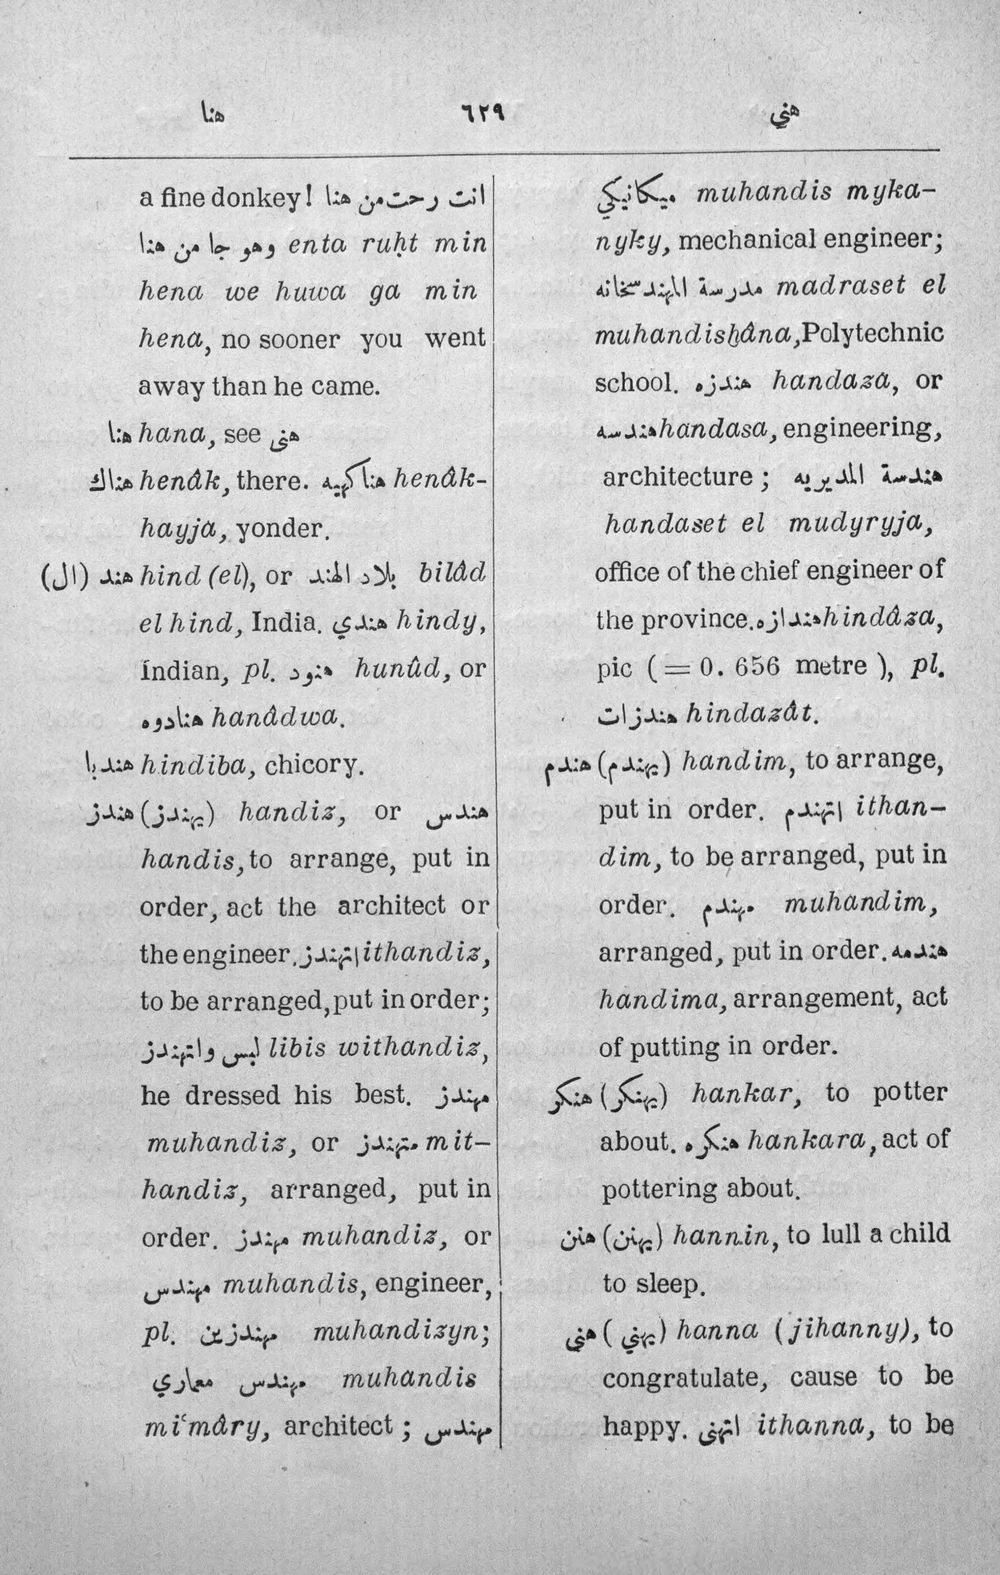 هنا ٦٢٩ هني
a fine donkey! انت رحت من هنا
وهو جا من هنا enta ruḥt min
hena we huwa ga min
hena, no sooner you went
away than he came.
هنا hana, see هنى
هناك henâk, there. هنا كهيه henâk-
hayja, yonder.
هند (ال) hind (el), or بلاد الهند bilâd
el hind, India. هندي hindy,
Indian, pl. هنود hunûd, or
هنادوه hanâdwa.
هندبا hindiba, chicory.
هندز (يهندز) handiz, or هندس
handis, to arrange, put in
order, act the architect or
the engineer. اتهندز ithandiz,
to be arranged, put in order;
لبس واتهندز libis withandiz,
he dressed his best. مهندز
muhandiz, or متهندز mit-
handiz, arranged, put in
order. مهندز muhandiz, or
مهندس muhandis, engineer,
pl. مهندزين muhandizyn;
مهندس معماري muhandis
mi‘mâry, architect; مهندس
ميكانيكي muhandis myka-
nyky, mechanical engineer;
مدرسة المهندسخانه madraset el
muhandisḫâna, Polytechnic
school. هندزه handaza, or
هندسه handasa, engineering,
architecture; هندسة المديريه
handaset el mudyryja,
office of the chief engineer of
the province. هندازه hindâza,
pic (= 0. 656 metre), pl.
هندزات hindazât.
هندم (يهندم) handim, to arrange,
put in order. اتهندم ithan-
dim, to be arranged, put in
order. مهندم muhandim,
arranged, put in order. هندمه
handima, arrangement, act
of putting in order.
هنكر (يهنكر) hankar, to potter
about. هنكره hankara, act of
pottering about.
هنن (يهنن) hannin, to lull a child
to sleep.
هني (يهني) hanna (jihanny), to
congratulate, cause to be
happy. اتهنى ithanna, to be